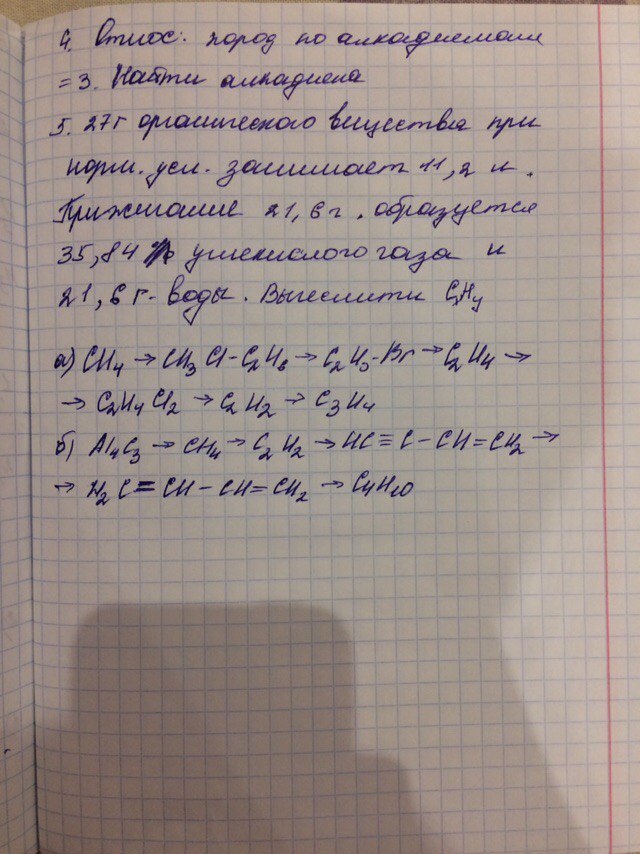 4. Относ. пород по алкадиенам
= 3. Найти алкадиена
5. 27 г органического вещества при
норм. усл. занимает 11,2 л.
При жигание 21,6 г. образуется
35,84 углекислого газа и
21,6 г воды. Вычеслити CxHy
а) CH4 → CH3Cl - C2H6 → C2H5-Br → C2H4 →
→ C2H4Cl2 → C2H2 → C3H4
б) Al4C3 → CH4 → C2H2 → HC≡C-CH=CH2 →
→ H2C=CH-CH=CH2 → C4H10